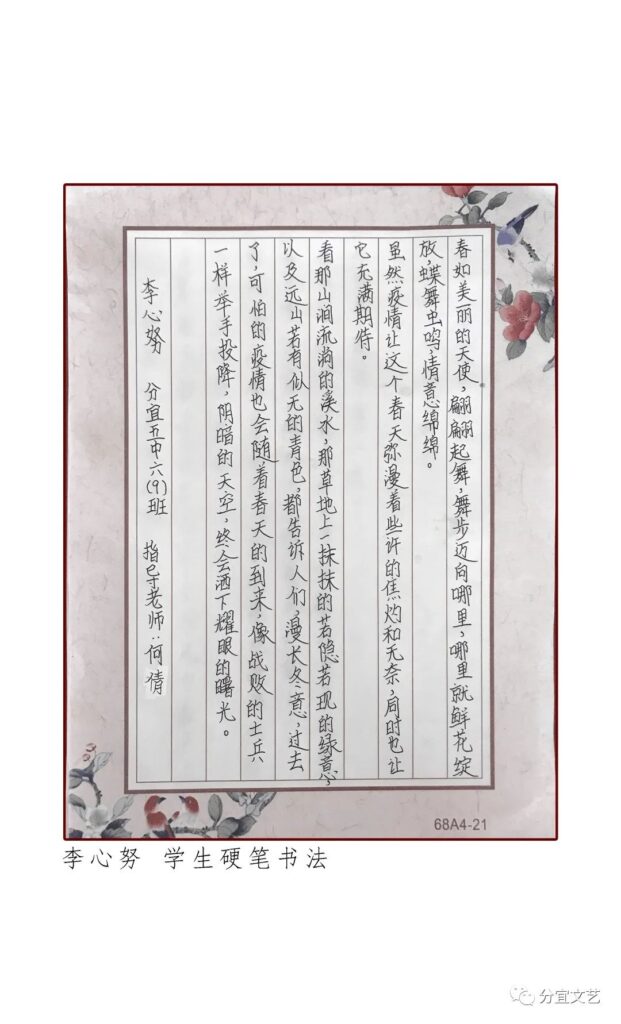 春如美丽的天使，翩翩起舞，舞步迈向哪里，哪里就鲜花绽
放，蝶舞虫鸣，情意绵绵。
虽然疫情让这个春天弥漫着些许的焦灼和无奈，同时也让
它充满期待。
看那山涧流淌的溪水，那草地上一抹抹的若隐若现的绿意，
以及远山若有似无的青色，都告诉人们，漫长冬意，过去
了，可怕的疫情也会随着春天的到来，像战败的士兵
一样举手投降，阴暗的天空，终会洒下耀眼的曙光。
李心努 分宜五中六(9)班 指导老师：何倩
68A4-21
李心努 学生硬笔书法
分宜文艺